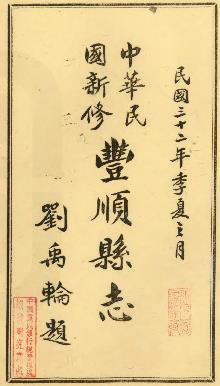 民國三十二年季夏之月
中華民
國新修
豐順縣志
劉禹輪題